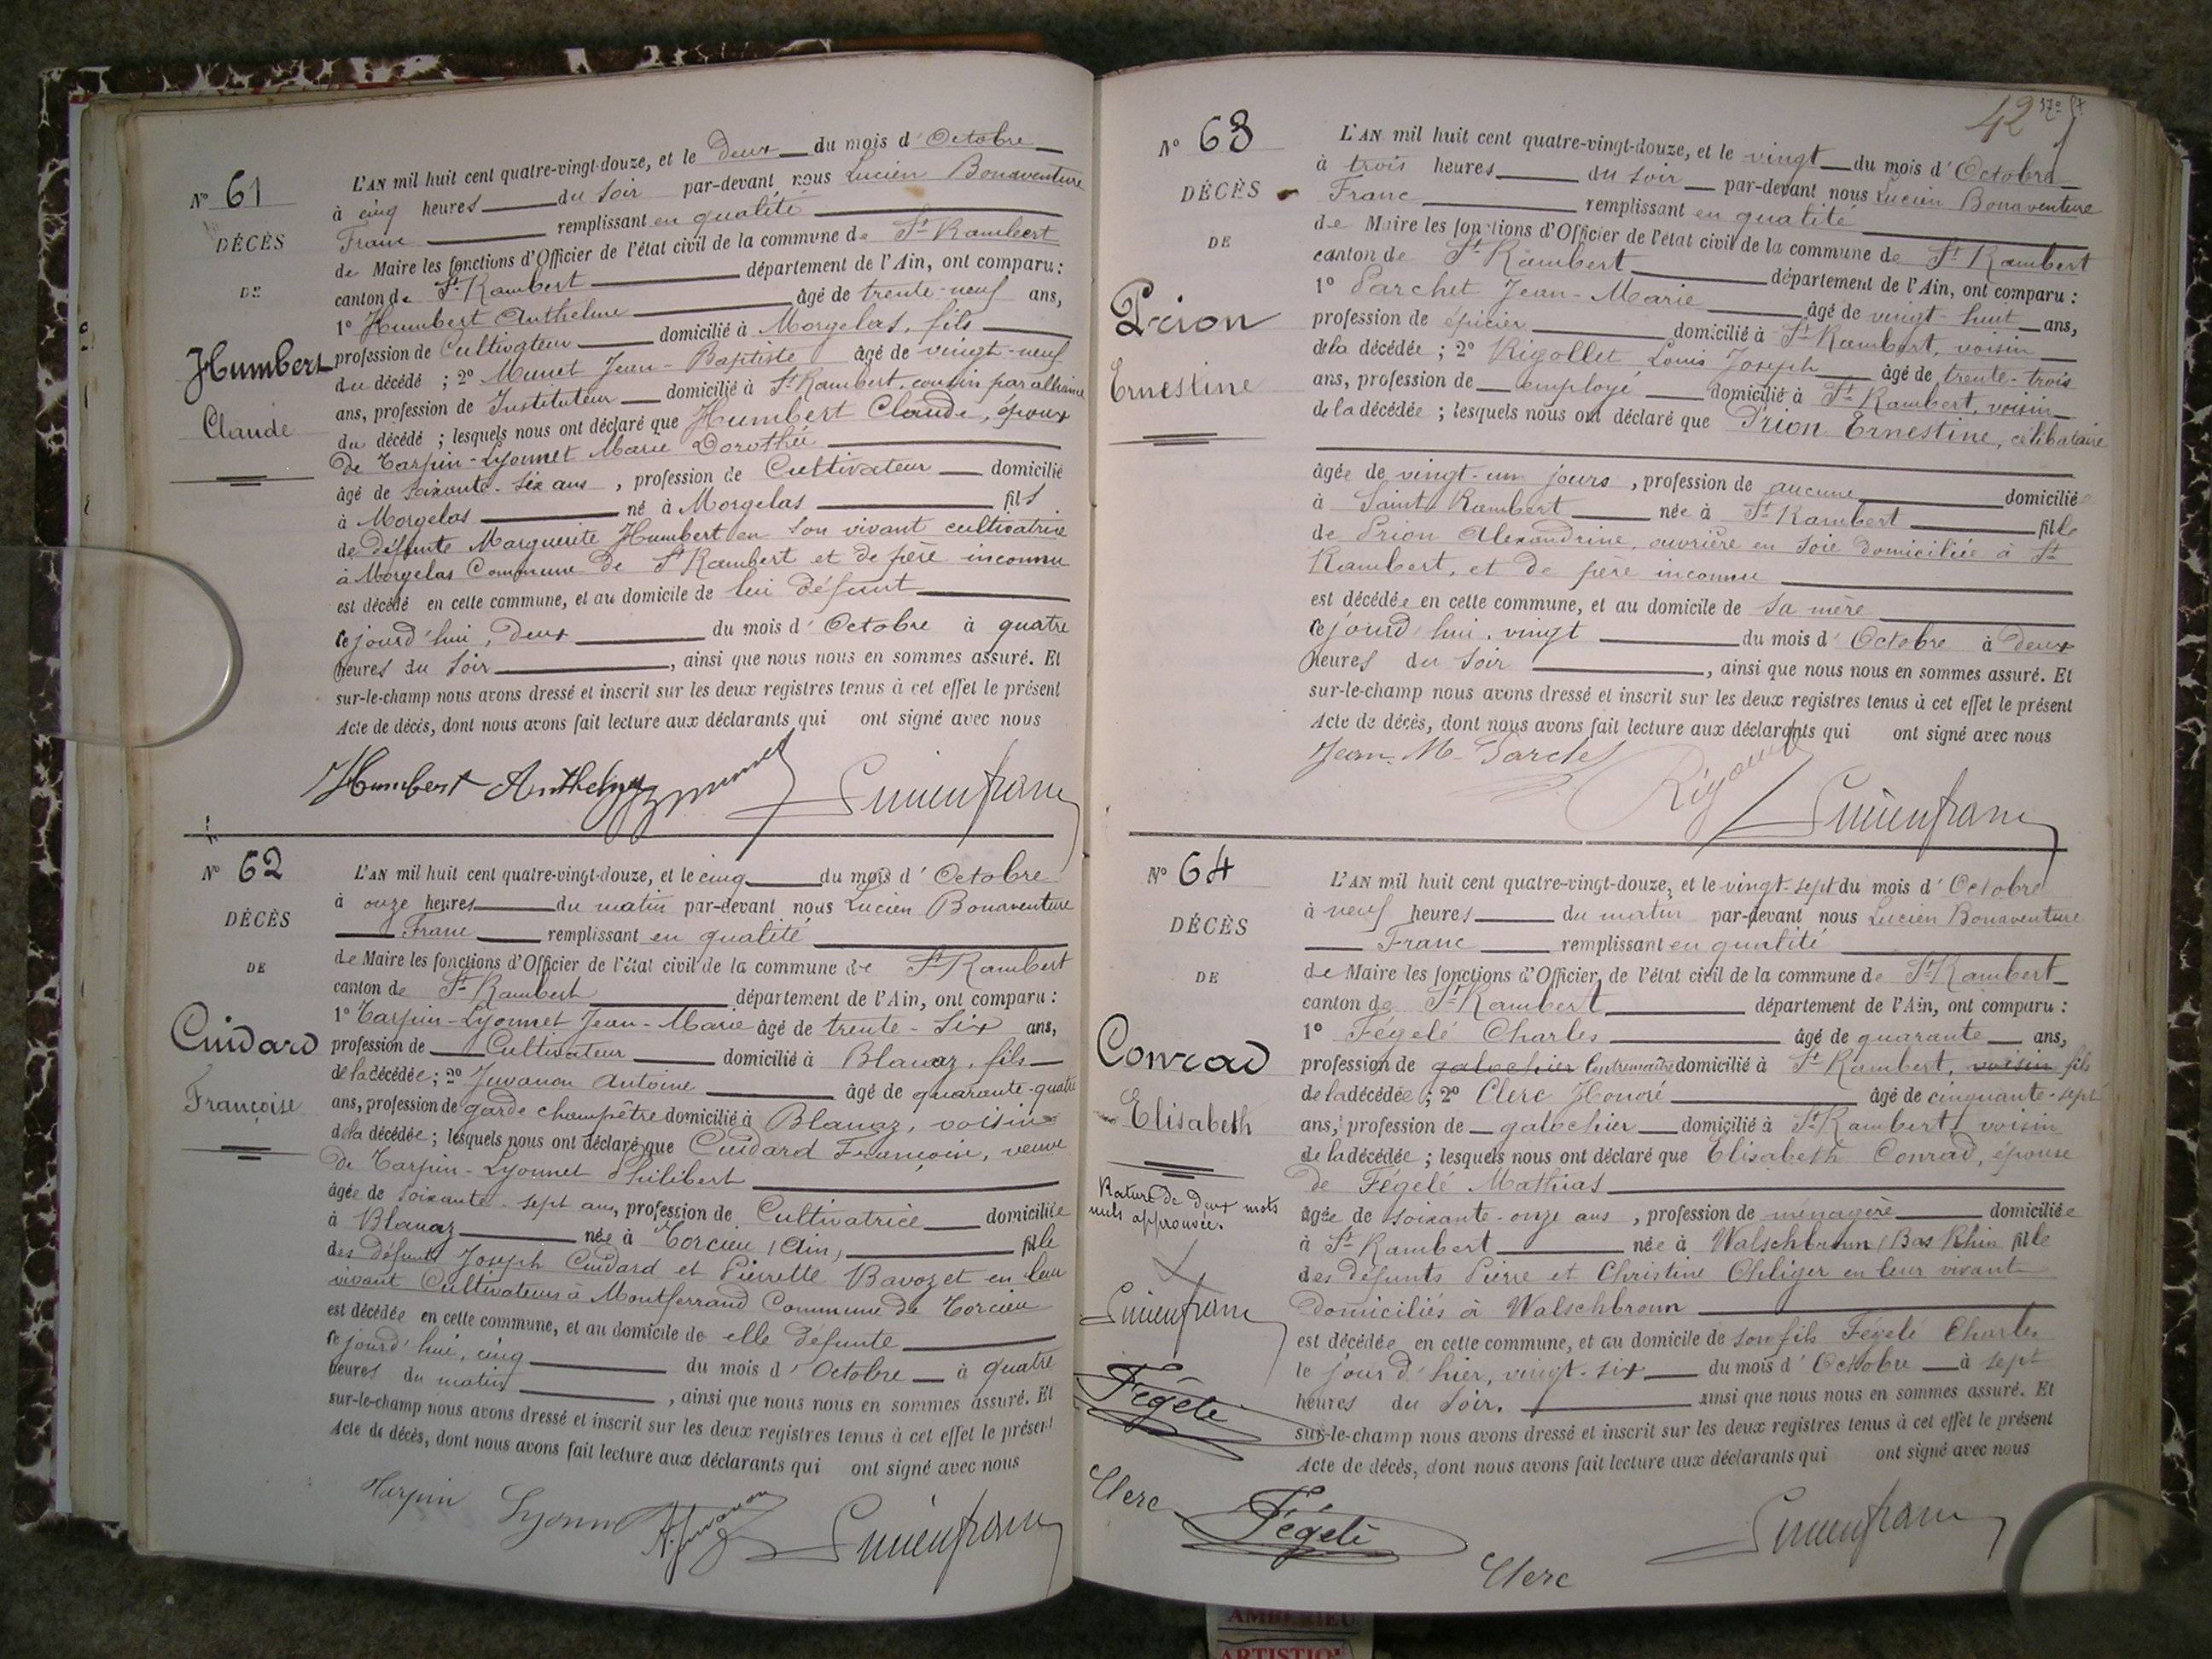 N° 61
DÉCÈS
DE
Humbert
Claude
L'AN mil huit cent quatre-vingt-douze, et le deux du mois d'Octobre
à cinq heures du soir par-devant nous Lucien Bonaventure
Franc remplissant en qualité
de Maire les fonctions d'Officier de l'état civil de la commune de St Rambert
canton de St Rambert département de l'Ain, ont comparu :
1° Humbert Anthelme âgé de trente-neuf ans,
profession de Cultivateur domicilié à Morgelas, fils
du décédé ; 2° Munet Jean-Baptiste âgé de vingt-neuf
ans, profession de Instituteur domicilié à St Rambert, cousin par alliance
du décédé ; lesquels nous ont déclaré que Humbert Claude, époux
de Tarpin-Lyonnet Marie Dorothée
âgé de soixante-six ans, profession de Cultivateur domicilié
à Morgelas né à Morgelas fils
de défunte Marguerite Humbert en son vivant cultivatrice
à Morgelas Commune de St Rambert et de père inconnu
est décédé en cette commune, et au domicile de lui défunt
ce jourd'hui, deux du mois d'Octobre à quatre
heures du soir, ainsi que nous nous en sommes assuré. Et
sur-le-champ nous avons dressé et inscrit sur les deux registres tenus à cet effet le présent
Acte de décès, dont nous avons fait lecture aux déclarants qui ont signé avec nous
Humbert Anthelme Munet Lucien franc
N° 62
DÉCÈS
DE
Cuidard
Françoise
L'AN mil huit cent quatre-vingt-douze, et le cinq du mois d'Octobre
à onze heures du matin par-devant nous Lucien Bonaventure
Franc remplissant en qualité
de Maire les fonctions d'Officier de l'état civil de la commune de St Rambert
canton de St Rambert département de l'Ain, ont comparu :
1° Tarpin-Lyonnet Jean-Marie âgé de trente-six ans,
profession de Cultivateur domicilié à Blanaz, fils
de la décédée ; 2° Juvanon Antoine âgé de quarante-quatre
ans, profession de garde champêtre domicilié à Blanaz, voisin
de la décédée ; lesquels nous ont déclaré que Cuidard Françoise, veuve
de Tarpin-Lyonnet Philibert
âgée de soixante-sept ans, profession de Cultivatrice domiciliée
à Blanaz née à Torcieu (Ain) fille
des défunts Joseph Cuidard et Pierrette Bavozet en leur
vivant Cultivateurs à Montferrand Commune de Torcieu
est décédée en cette commune, et au domicile de elle défunte
ce jourd'hui, cinq du mois d'Octobre à quatre
heures du matin, ainsi que nous nous en sommes assuré. Et
sur-le-champ nous avons dressé et inscrit sur les deux registres tenus à cet effet le présent
Acte de décès, dont nous avons fait lecture aux déclarants qui ont signé avec nous
Tarpin Lyonnet A. Juvanon Lucien franc
42
N° 63
DÉCÈS
DE
Prion
Ernestine
L'AN mil huit cent quatre-vingt-douze, et le vingt du mois d'Octobre
à trois heures du soir par-devant nous Lucien Bonaventure
Franc remplissant en qualité
de Maire les fonctions d'Officier de l'état civil de la commune de St Rambert
canton de St Rambert département de l'Ain, ont comparu :
1° Parchet Jean-Marie âgé de vingt-huit ans,
profession de épicier domicilié à St Rambert, voisin
de la décédée ; 2° Rigollet Louis Joseph âgé de trente-trois
ans, profession de employé domicilié à St Rambert, voisin
de la décédée ; lesquels nous ont déclaré que Prion Ernestine, célibataire
âgée de vingt-un jours, profession de aucune domiciliée
à Saint Rambert née à St Rambert fille
de Prion Alexandrine, ouvrière en soie domiciliée à St
Rambert, et de père inconnu
est décédée en cette commune, et au domicile de sa mère
ce jourd'hui, vingt du mois d'Octobre à deux
heures du soir, ainsi que nous nous en sommes assuré. Et
sur-le-champ nous avons dressé et inscrit sur les deux registres tenus à cet effet le présent
Acte de décès, dont nous avons fait lecture aux déclarants qui ont signé avec nous
Jean. M. Parchet Lucien franc
N° 64
DÉCÈS
DE
Conrad
Elisabeth
Rature de deux mots
nuls approuvée.
Lucien franc
Fégelé
Clerc
L'AN mil huit cent quatre-vingt-douze, et le vingt-sept du mois d'Octobre
à neuf heures du matin par-devant nous Lucien Bonaventure
Franc remplissant en qualité
de Maire les fonctions d'Officier de l'état civil de la commune de St Rambert
canton de St Rambert département de l'Ain, ont comparu :
1° Fégelé Charles âgé de quarante ans,
profession de galochier Contremaître domicilié à St Rambert, voisin fils
de la décédée ; 2° Clerc Honoré âgé de cinquante-sept
ans, profession de galochier domicilié à St Rambert, voisin
de la décédée ; lesquels nous ont déclaré que Elisabeth Conrad, épouse
de Fégelé Mathias
âgée de soixante-onze ans, profession de ménagère domiciliée
à St Rambert née à Walschbronn (Bas Rhin fille
des défunts Pierre et Christine Ohliger en leur vivant
Domiciliés à Walschbronn
est décédée en cette commune, et au domicile de son fils Fégelé Charles
le jour d'hier, vingt-six du mois d'Octobre à sept
heures du soir. ainsi que nous nous en sommes assuré. Et
sur-le-champ nous avons dressé et inscrit sur les deux registres tenus à cet effet le présent
Acte de décès, dont nous avons fait lecture aux déclarants qui ont signé avec nous
Fégelé Clerc Lucien franc
AMBÉRIEU
ARTISTIQU